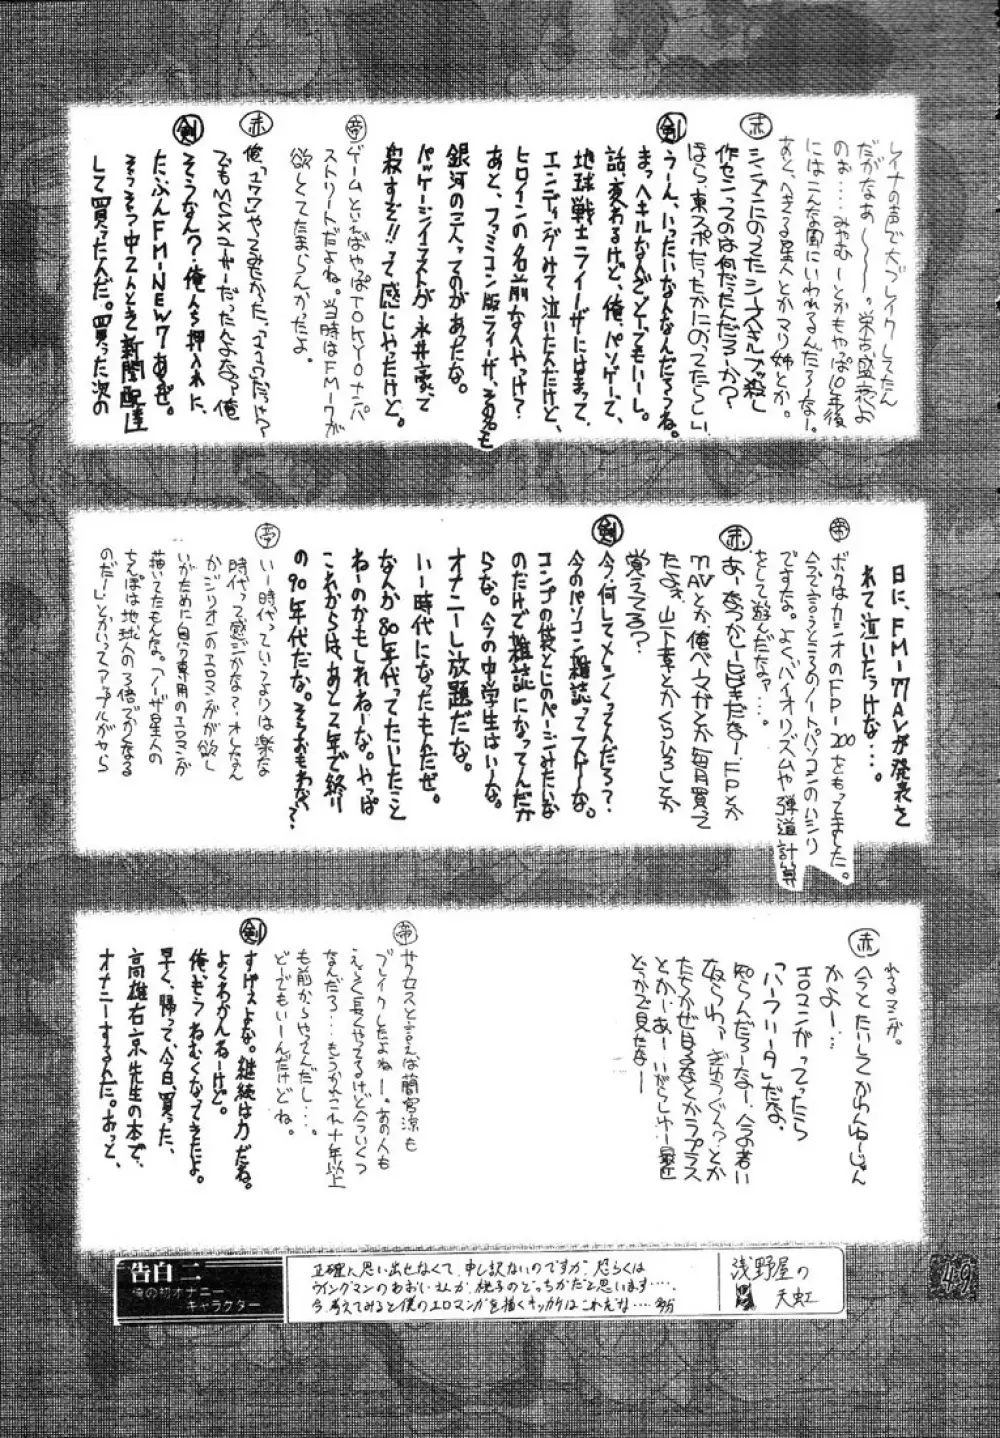 レイナの声で大ブレイクしてたん
だがなぁ〜〜〜。栄古盛衰よ
のぉ…みやむーとかもやっぱ10年後
にはこんな風にいわれるんだろーなー。
あと、ヘきる星人とかマリ姉とか。
赤
作セントってのは何だったんだろうか?
ほら、東スポだったかにのってたらしい
剣
うーん、いったいなんなんだろうね。
まっヘキルなんざどーでもいーし。
話、変わるけど、俺、パソゲーで、
地球戦士ライーザにはまって、
エンディングみて泣いたんだけど、
ヒロインの名前なんやっけ?
あと、ファミコン版ライーザ、その名も
銀河の三人ってのがあったな。
パッケージイラストが永井豪で
殺すぞ!!って感じやったけど。
帝
ゲームといえばやっぱTOKYOナンパ
ストリートだよね。当時はFM-7が
欲しくてたまらんかったよ。
赤
でもMSXユーザーだったんよなっ俺
剣
そうなん?俺んち押入れに、
たぶんFM-NEW7あるぜ。
そっそっ中2んとき新聞配達
して買ったんだ。買った次の
日に、FM-77AVが発表さ
れて泣いたっけな…。
帝
ボクはカシオのFP-200をもってました。
今で言うところのノートパソコンのハシリ
ですな。よくバイオリズムや弾道計算
をして遊んだなァ…。
赤
MAVとか、俺ベーマガとか毎月買って
たよ。山下章とかくらひろしとか
覚えてる?
剣
今、何してメシくってんだろう?
今のパソコン雑誌ってスゲーな。
コンプの袋とじのページみたいな
のだけで雑誌になってんだか
らな。今の中学生はいーな。
オナニーし放題だな。
いー時代になったもんだぜ。
なんか80年代ってたいしたこと
ねーのかもしれねーな。やっぱ
これからは、あと二年で終り
の90年代だな。そうおもわない?
帝
いー時代っていうよりは楽な
時代って感ジかな?オレなん
かジリオンのエロマンガが欲し
いがために自分専用のエロマンガ
描いてたもんな。「ノーザ星人の
ちんぽは地球人の3倍でかくなる
のだー!」とかいってアップルがヤら
れるマンガ。
赤
今とたいしてかわんねーじゃん
かよー…
エロマンガってったら
「ハーフリータ」だな。
知らんだろーなー、今の若い
とかー あー、いがらしゆー最近
どっかで見たなー
帝
サクセスと言えば蘭宮涼も
ブレイクしたよねー。あの人も
えらく長くやってるけど今いくつ
なんだろ…もうかれこれ十年以上
も前からやってんだし…。
どーでもいーんだけどね。
剣
すげェよな。継続は力だね。
よくわかんねーけど。
俺もうねむくなってきたよ。
早く、帰って、今日、買った、
高雄右京先生の本で、
オナニーするんだ。おっと、
告白二
俺の初オナニー
キャラクター
正確に思い出せなくて、申し訳ないのですが、恐らくは
ウイングマンのあおいさんか、桃子のどっちかだと思います…。
今、考えてみると僕のエロマンガを描くキッカケはこれだな…多分
浅野屋の
天虹
49